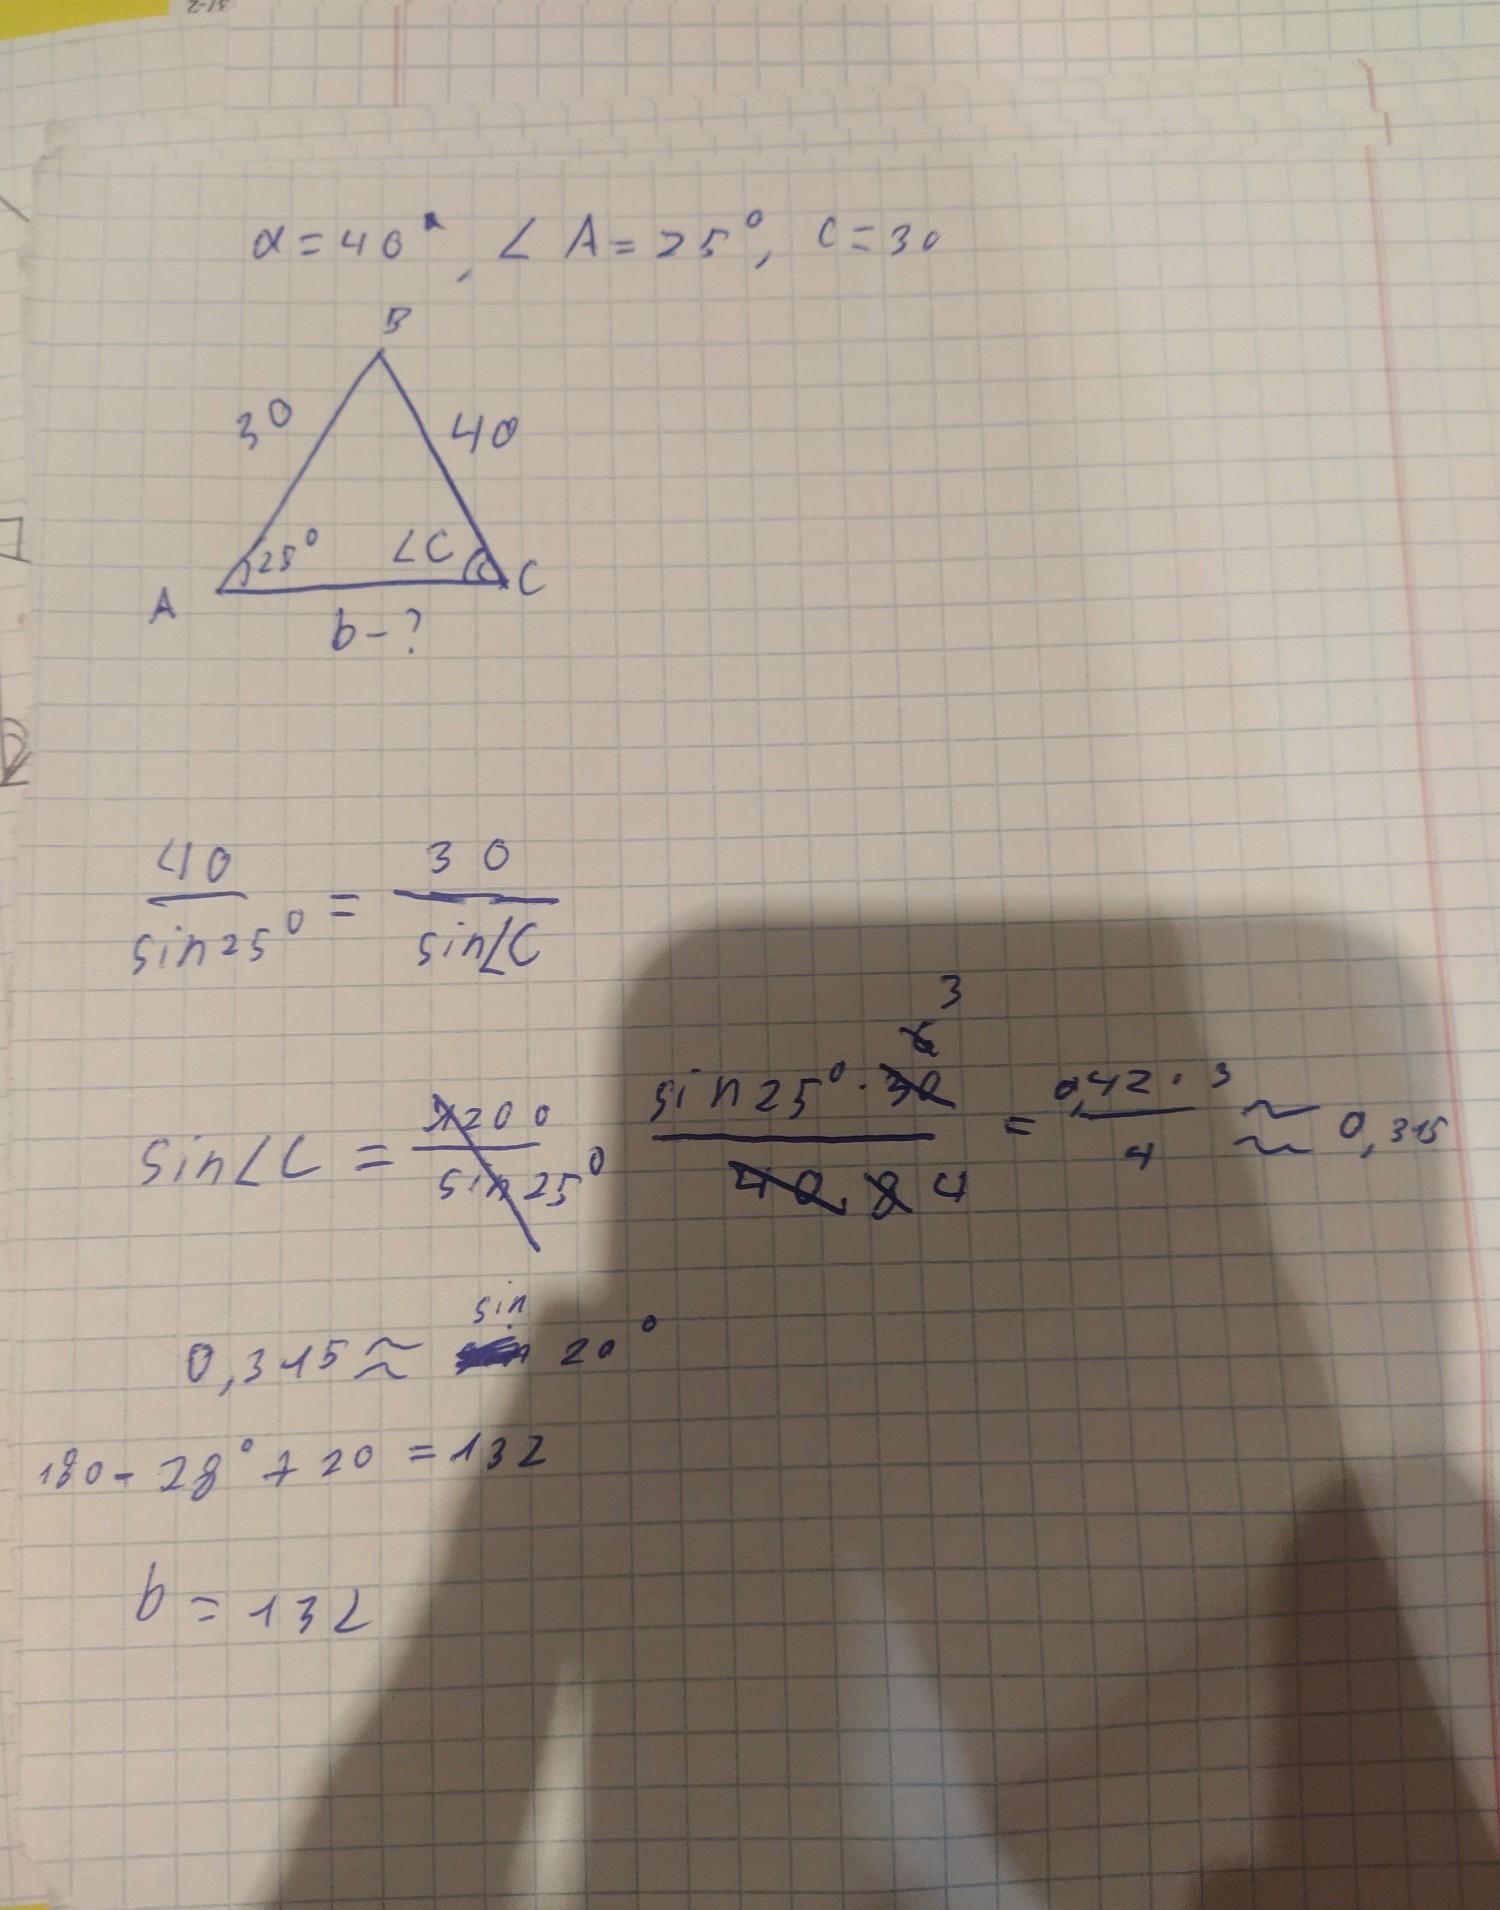 α = 40 , ∠ A = 25°, c = 30
B
30 40
25° ∠C
A C
b - ?
40 / sin 25° = 30 / sin∠C
sin∠C = 1200 / sin 25° sin 25° · 30 6 3 / 40 8 4 = 0,42 · 3 / 4 ≈ 0,315
0,315 ≈ sin 20°
180 - 28° + 20 = 132
b = 132